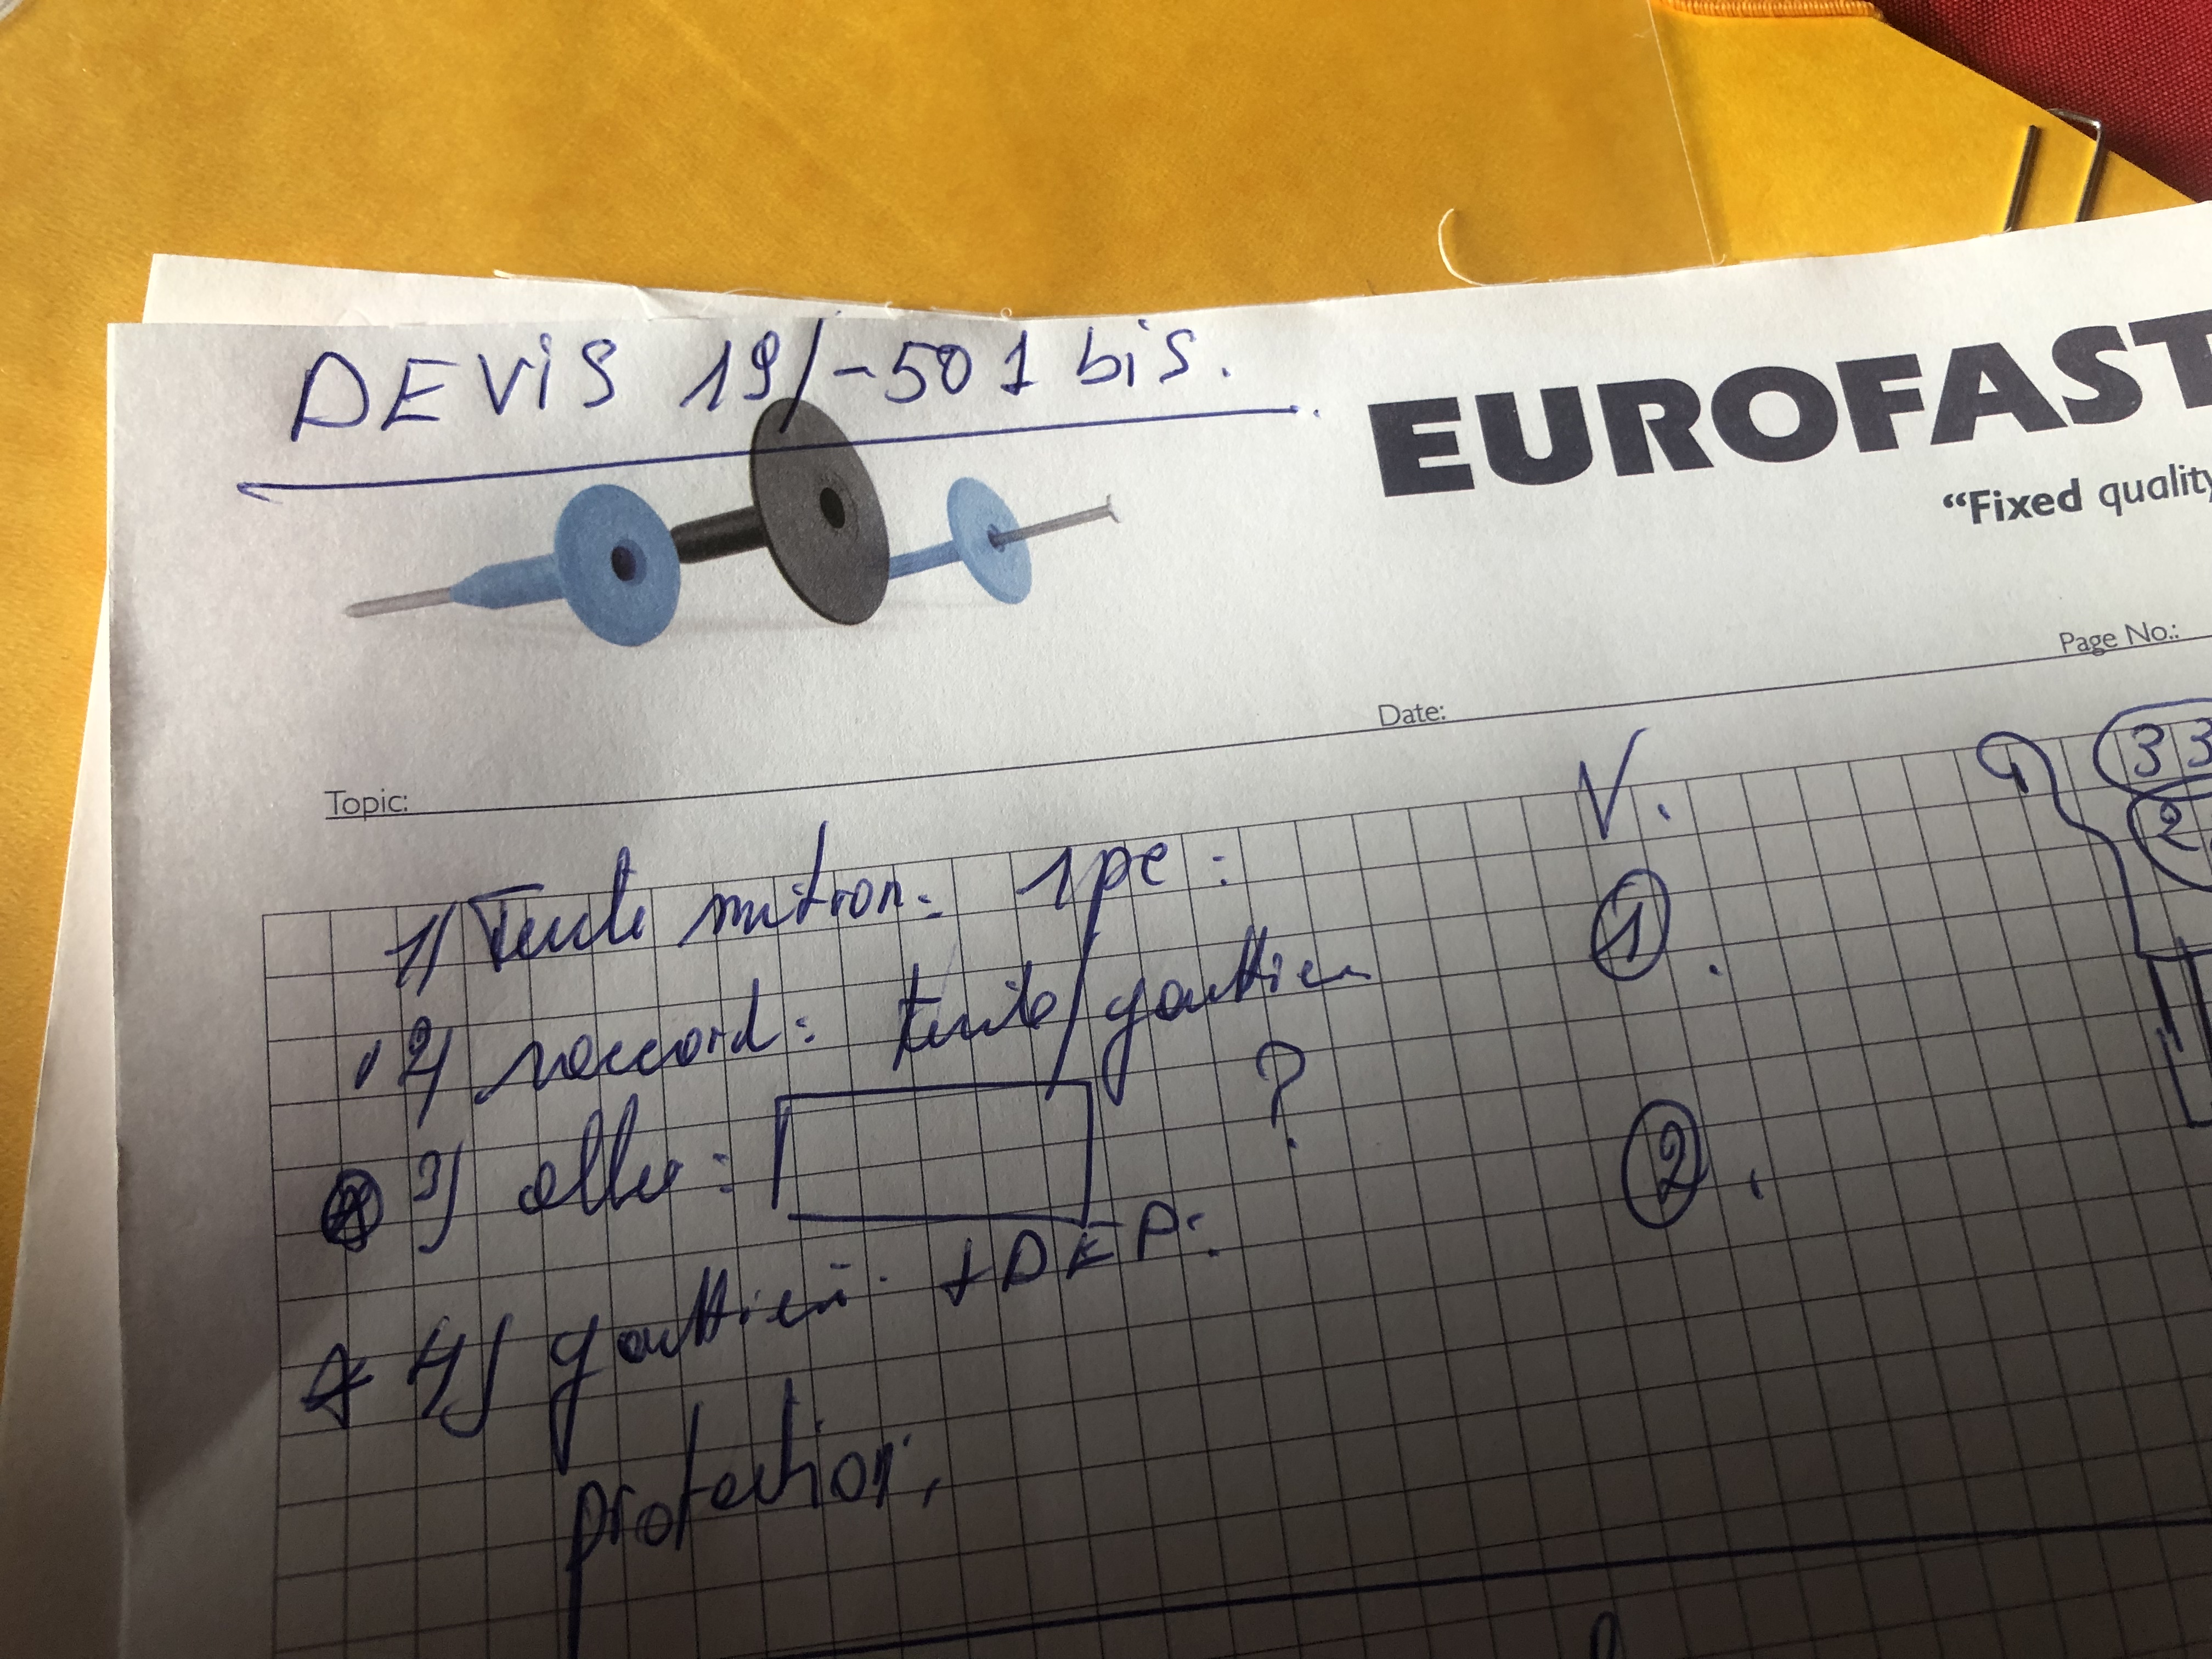 DEVIS 19/-501 bis.
EUROFAST
"Fixed quality
Page No.:
Date:
Topic:
V.
1) Tuile mitron: 1pc:
1
33
2
2) raccord: tuile/gouttière
3) :
?
2
4) gouttière + DEP:
protection,